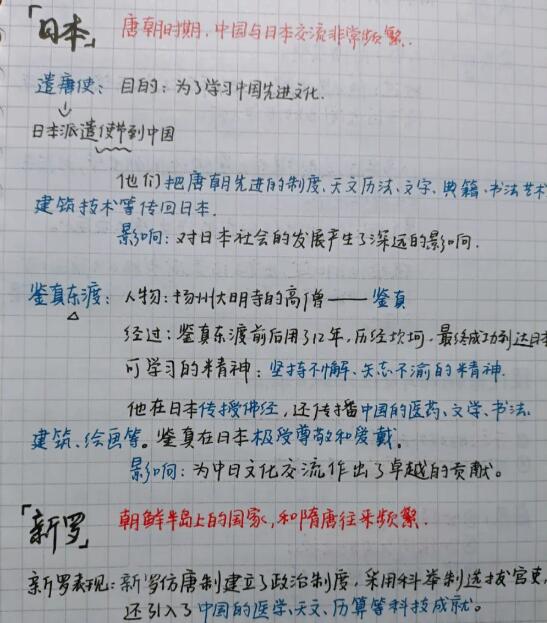 「日本」 唐朝时期,中国与日本交流非常频繁.
遣唐使: 目的:为了学习中国先进文化.
↓
日本派遣使节到中国
他们把唐朝先进的制度、天文历法、文字、典籍、书法艺术
建筑技术等传回日本.
影响:对日本社会的发展产生了深远的影响.
鉴真东渡: 人物:扬州大明寺的高僧——鉴真
经过:鉴真东渡前后用了12年,历经坎坷,最终成功到达日本
可学习的精神:坚持不懈、矢志不渝的精神.
他在日本传授佛经,还传播中国的医药、文学、书法、
建筑、绘画等。鉴真在日本极受尊敬和爱戴。
影响:为中日文化交流作出了卓越的贡献。
「新罗」 朝鲜半岛上的国家,和隋唐往来频繁.
新罗表现:新罗仿唐制建立了政治制度,采用科举制选拔官吏,
还引入了中国的医学、天文、历算等科技成就。